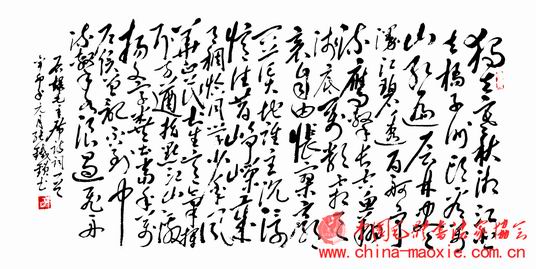 独立寒秋湘江北
去橘子洲头看万
山红遍层林尽染
漫江碧透百舸争
流鹰击长空鱼翔
浅底万类霜天
竞自由怅寥廓
问苍茫大地谁主沉浮
忆往昔峥嵘岁月
稠恰同学少年风
华正茂书生意气挥
斥方遒指点江山激
扬文字粪土当年万
户侯曾记否到中
流击水浪遏飞舟
毛主席诗词一首
中国毛体书法家协会
www.china-maoxie.com.cn